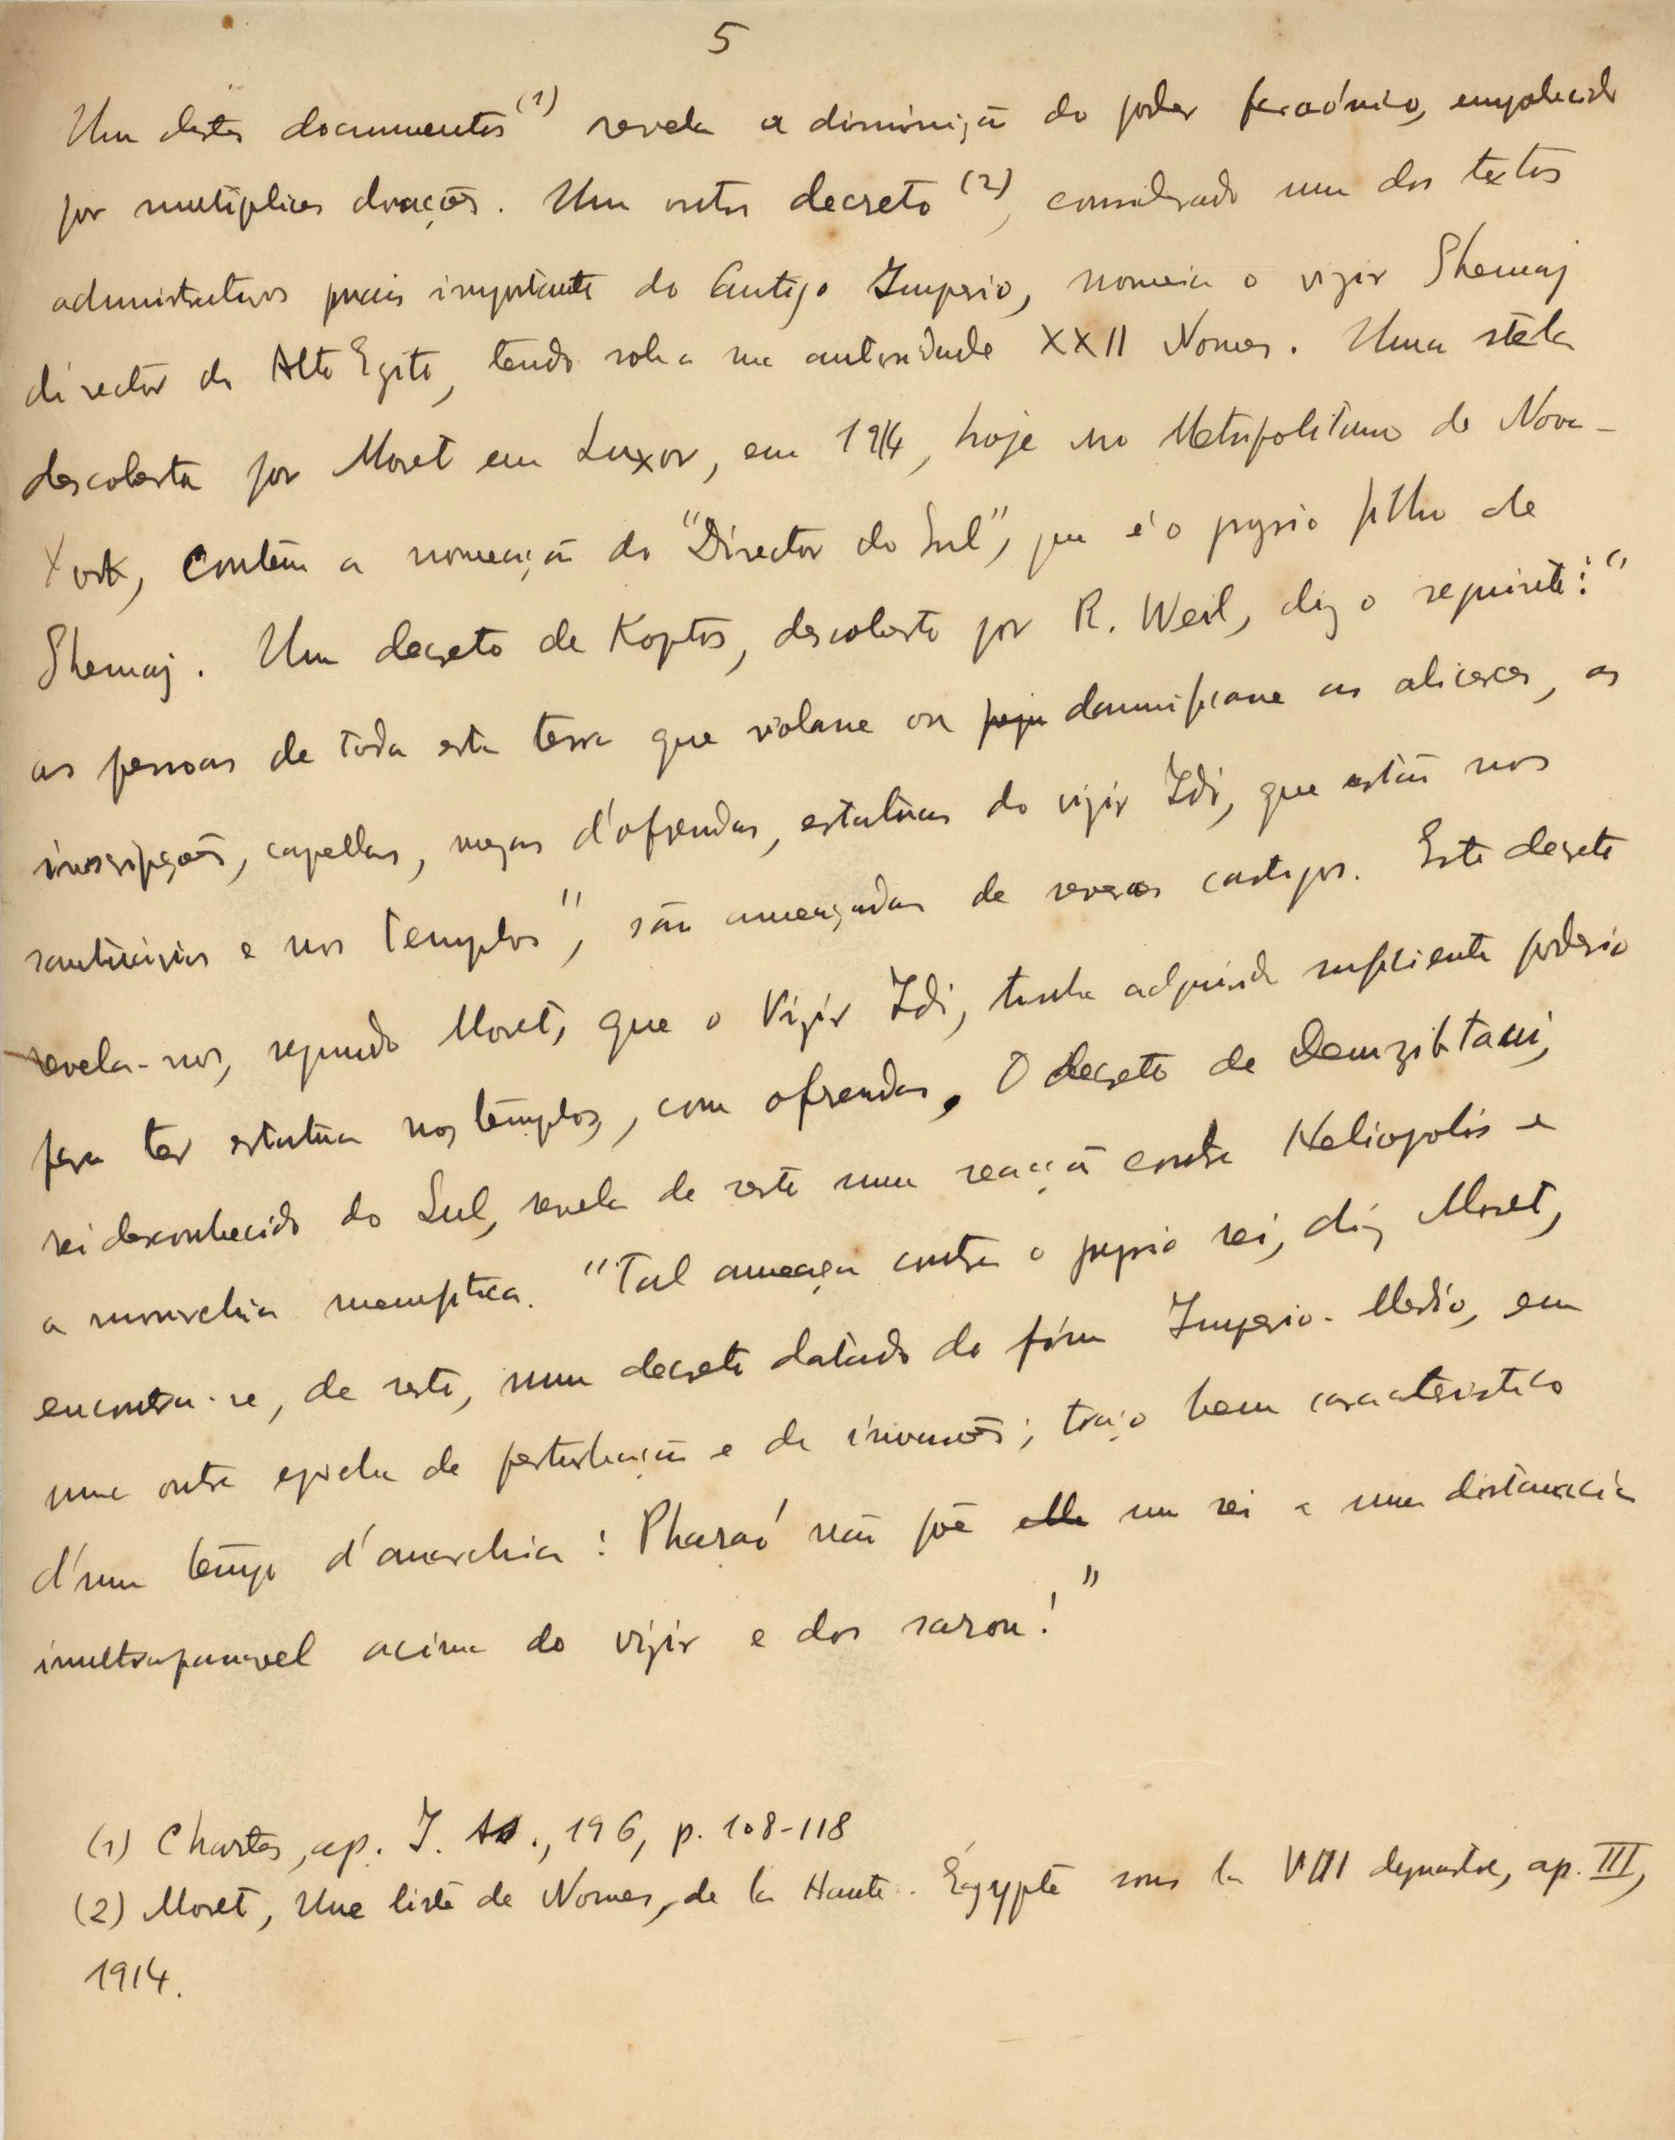 5
Um destes documentos (1) revela a diminuiçã do poder faraónico, empobrecido
por multiplices doações. Um outro decreto (2), considerado um dos textos
administrativos mais importante do Antigo Imperio, nomeia o vizir Shemaj
director do Alto Egito, tendo sob a sua autoridade XXII Nomos. Uma stela
descoberta por Moret em Luxor, em 1914, hoje no Metropolitano de Nova-
York, contêm a nomeaçã do "Director do Sul", que é o proprio filho de
Shemaj. Um decreto de Koptos, descoberto por R. Weil, diz o seguinte: "
as pessoas de toda esta terra que violarem ou damnificarem os alicerces, as
inscripções, capellas, mezas d'ofrendas, estatuas do vizir Idi, que estão nos
santuarios e nos templos", são ameaçadas de severos castigos. Este decreto
revela-nos, segundo Moret, que o Vizir Idi, tinha adquirido sufficiente poderio
para ter estatua nos templos, com ofrendas. O decreto de Demzibtaui,
rei desconhecido do Sul, revela de resto uma reacçã contra Heliopolis e
a monarchia memphitica. "Tal ameaça contra o proprio rei, diz Moret,
encontra-se, de resto, num decreto datado do fim Imperio-Medio, em
uma outra epocha de perturbaçã e de invasões; traço bem caracteristico
d'um tempo d'anarchia: Pharaó não põe um rei a uma distancia
inultrapassavel acima do vizir e dos sarou!"
(1) Chartes, ap. J. As., 196, p. 108-118
(2) Moret, Une liste de Nomes, de la Haute-Égypte sous la VIII dynastie, ap. III,
1914.